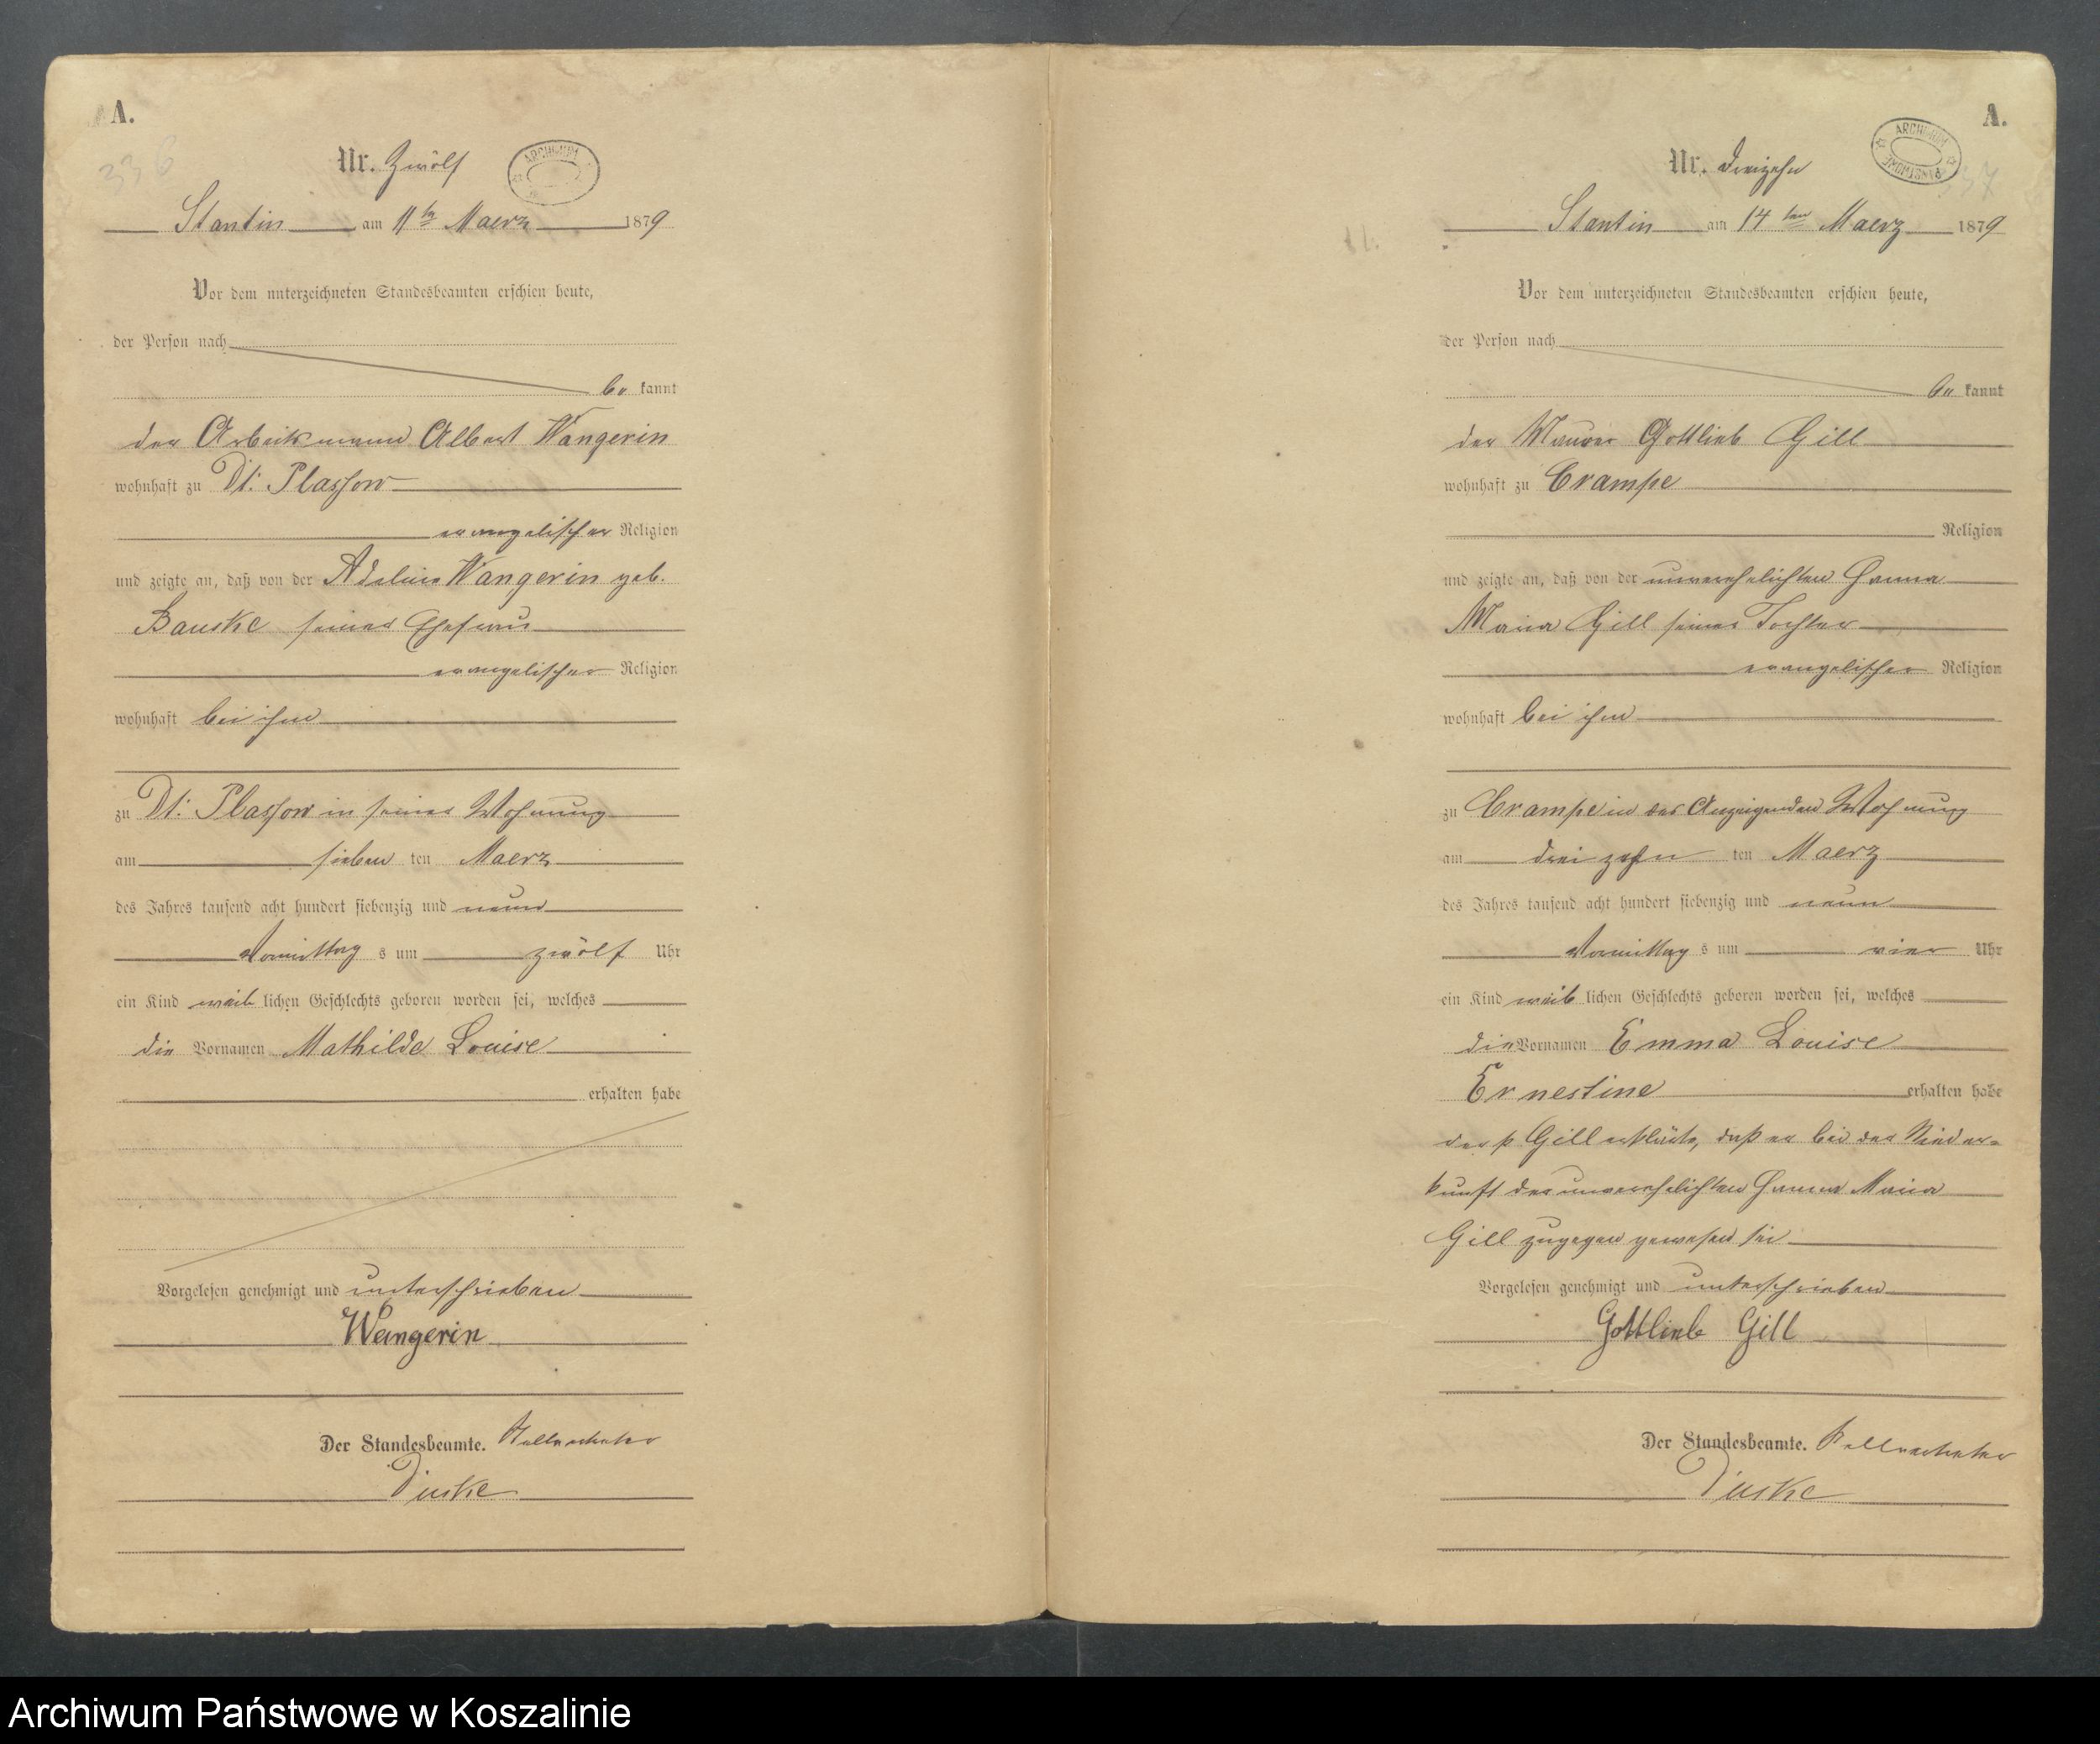 A.
336
Nr. Zwölf
ARCHIWUM
Stantin am 11ten Maerz 1879
Vor dem unterzeichneten Standesbeamten erschien heute,
der Person nach
be kannt
der Arbeitsmann Albert Wangerin
wohnhaft zu Dt: Plassow
evangelischer Religion
und zeigte an, daß von der Adeline Wangerin geb.
Bauske seiner Ehefrau
evangelischer Religion
wohnhaft bei ihm
zu Dt: Plassow in seiner Wohnung
am sieben ten Maerz
des Jahres tausend acht hundert siebenzig und neun
Vormittag s um zwölf Uhr
ein Kind weib lichen Geschlechts geboren worden sei, welches
die Vornamen Mathilde Louise
erhalten habe
Vorgelesen genehmigt und unterschrieben
Wangerin
Der Standesbeamte. Stellvertreter
A.
Nr. dreizehn
ARCHIWUM PAŃSTWOWE
337
Stantin am 14ten Maerz 1879
Vor dem unterzeichneten Standesbeamten erschien heute,
der Person nach
be kannt
der Maurer Gottlieb Gill
wohnhaft zu Crampe
Religion
und zeigte an, daß von der unverehelichten Hanna
Maria Gill seiner Tochter
evangelischer Religion
wohnhaft bei ihm
zu Crampe in des Anzeigenden Wohnung
am dreizehn ten Maerz
des Jahres tausend acht hundert siebenzig und neun
Vormittag s um vier Uhr
ein Kind weib lichen Geschlechts geboren worden sei, welches
die Vornamen Emma Louise
Ernestine erhalten habe
der p Gill erklärte, daß er bei der Nieder=
kunft der unverehelichten Hanna Maria
Gill zugegen gewesen sei
Vorgelesen genehmigt und unterschrieben
Gottlieb Gill
Der Standesbeamte. Stellvertreter
Archiwum Państwowe w Koszalinie